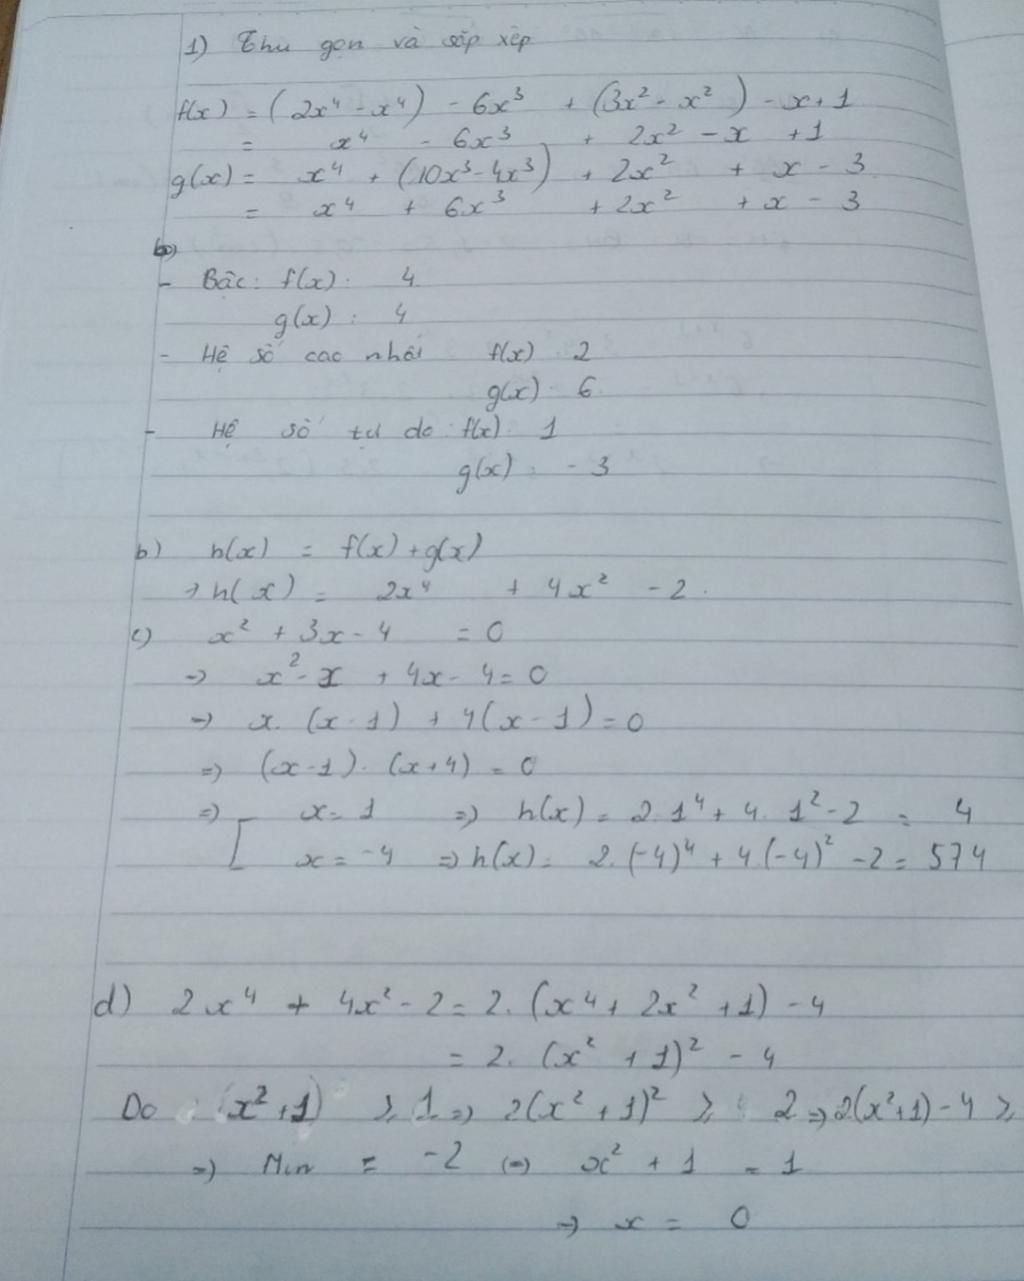 1) Thu gọn và sắp xếp
f(x) = (2x⁴ - x⁴) - 6x³ + (3x² - x²) - x + 1
= x⁴ - 6x³ + 2x² - x + 1
g(x) = x⁴ + (10x³ - 4x³) + 2x² + x - 3
= x⁴ + 6x³ + 2x² + x - 3
b)
- Bậc: f(x): 4
g(x): 4
- Hệ số cao nhất f(x) 2
g(x) - 6
- Hệ số tự do f(x): 1
g(x): - 3
b) h(x) = f(x) + g(x)
→ h(x) = 2x⁴ + 4x² - 2.
c) x² + 3x - 4 = 0
→ x² - x + 4x - 4 = 0
→ x. (x - 1) + 4(x - 1) = 0
⇒ (x - 1). (x + 4) = 0
⇒ [ x = 1 ⇒ h(x) = 2.1⁴ + 4. 1² - 2 = 4
x = -4 ⇒ h(x) = 2.(-4)⁴ + 4.(-4)² - 2 = 574
d) 2x⁴ + 4x² - 2 = 2. (x⁴ + 2x² + 1) - 4
= 2. (x² + 1)² - 4
Do (x² + 1) ≥ 1 ⇒ 2(x² + 1)² ≥ 2 ⇒ 2(x² + 1) - 4 ≥
⇒ Min = -2 (=) x² + 1 = 1
→ x = 0